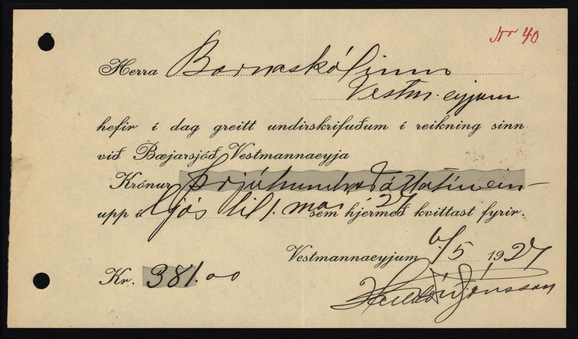 Nr 40
Herra Barnaskólinn
Vestm. eyjum
hefir í dag greitt undirskrifuðum í reikning sinn
við Bæjarsjóð Vestmannaeyja
Krónur Þrjúhundru áttatíu ein-
upp í ljós til 1. mai '27 sem hjermeð kvittast fyrir.
Vestmannaeyjum 6/5 1927
Kr. 381.00
Jónsson